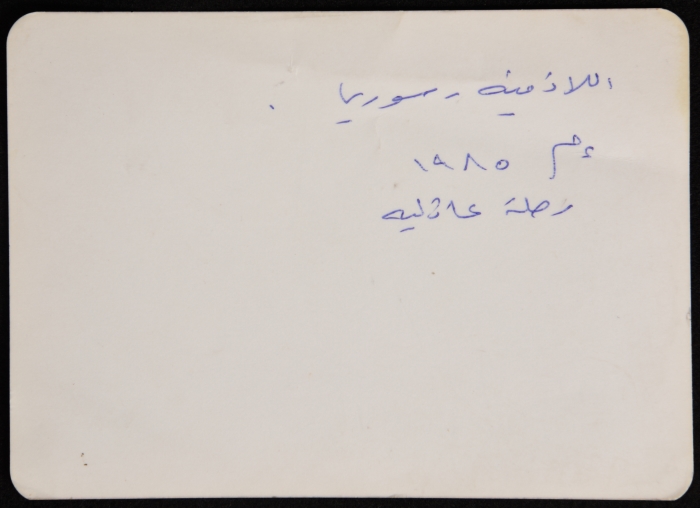 اللاذقية - سوريا .
عام ١٩٨٥
رحلة عائلية